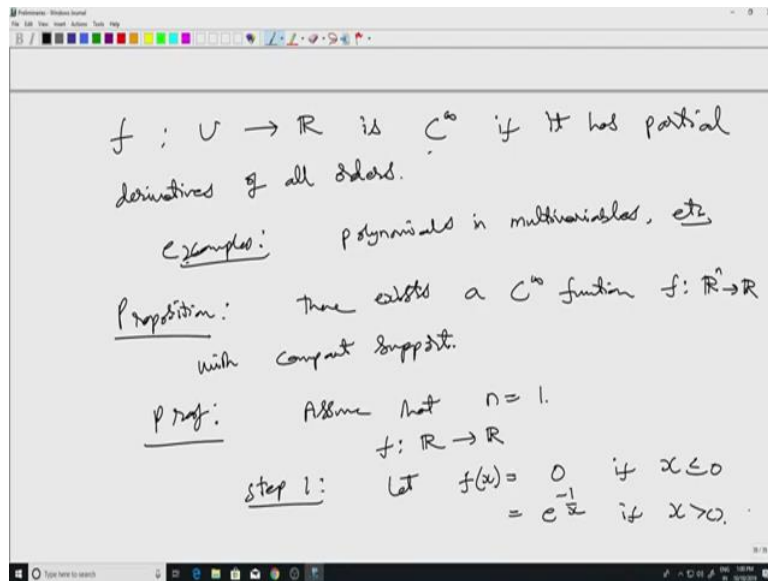 Preliminaries - Windows Journal
File Edit View Insert Actions Tools Help
B I
f : U → ℝ is C^∞ if it has partial
derivatives of all orders.
examples: polynomials in multivariables, etc
Proposition: there exists a C^∞ function f: ℝ^n → ℝ
with compact support.
Proof: Assume that n = 1.
f: ℝ → ℝ
Step 1: Let f(x) = 0 if x ≤ 0
= e^{-1/x} if x > 0.
Type here to search